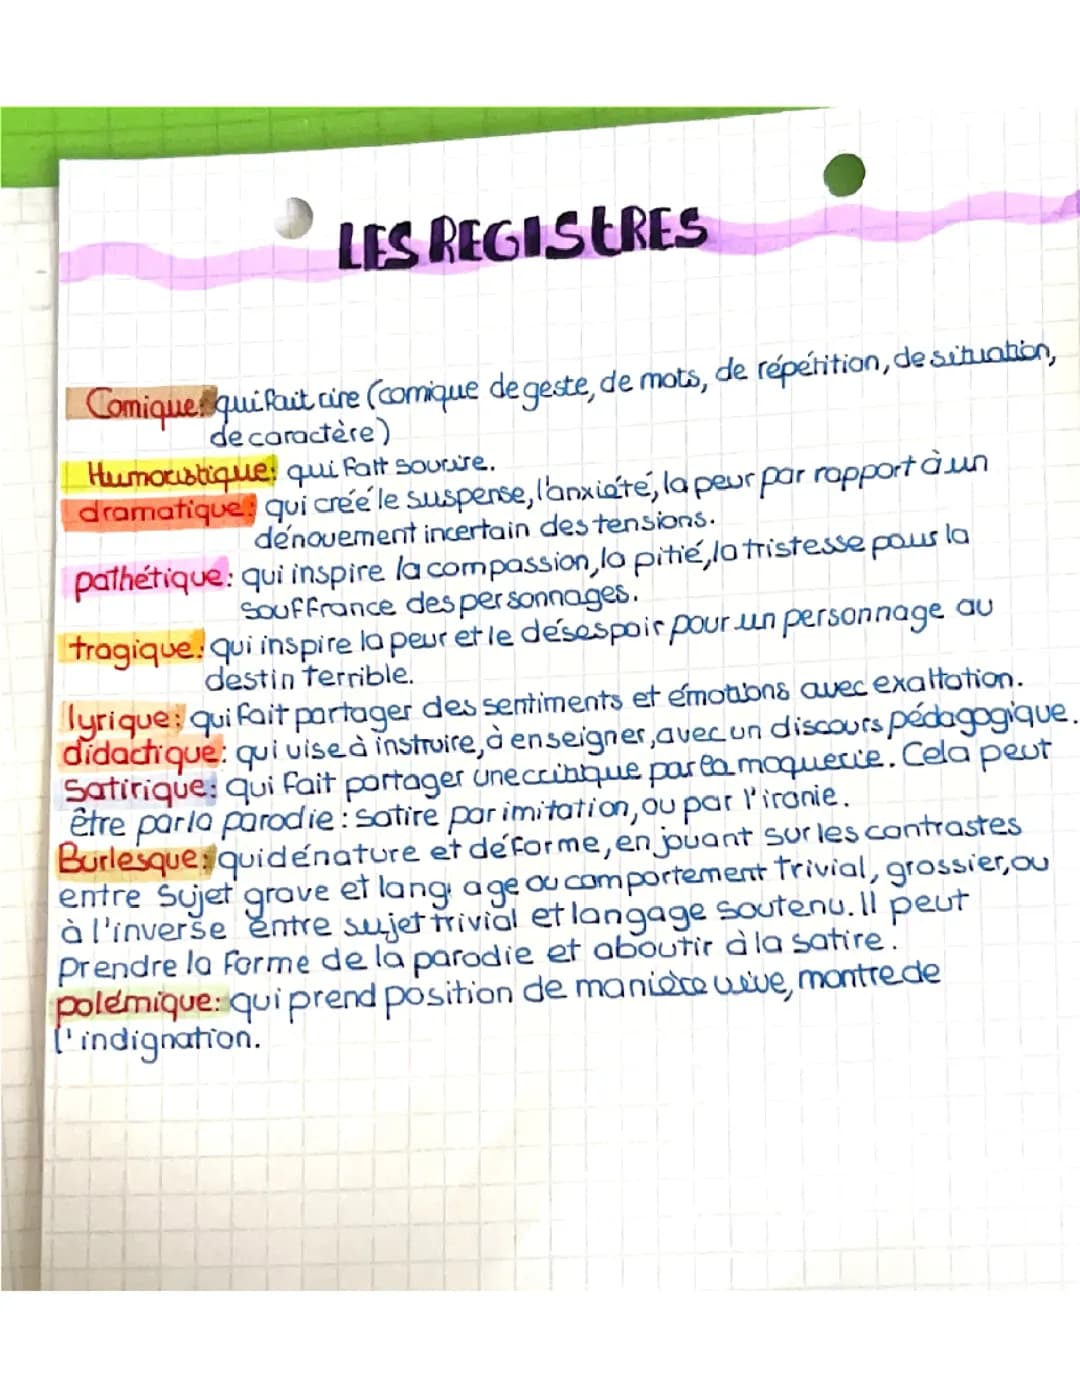 LES REGISTRES
Comique: qui fait rire (comique de geste, de mots, de répétition, de situation,
de caractère)
Humoristique: qui fait sourire.
dramatique: qui créé le suspense, l'anxiété, la peur par rapport à un
dénouement incertain des tensions.
pathétique: qui inspire la compassion, la pitié, la tristesse pour la
souffrance des personnages.
tragique: qui inspire la peur et le désespoir pour un personnage au
destin terrible.
lyrique: qui fait partager des sentiments et émotions avec exaltation.
didactique: qui vise à instruire, à enseigner, avec un discours pédagogique.
Satirique: qui fait partager une critique par la moquerie. Cela peut
être par la parodie: satire par imitation, ou par l'ironie.
Burlesque: qui dénature et déforme, en jouant sur les contrastes
entre sujet grave et langage ou comportement trivial, grossier, ou
à l'inverse entre sujet trivial et langage soutenu. Il peut
prendre la forme de la parodie et aboutir à la satire.
polémique: qui prend position de manière vive, montre de
l'indignation.